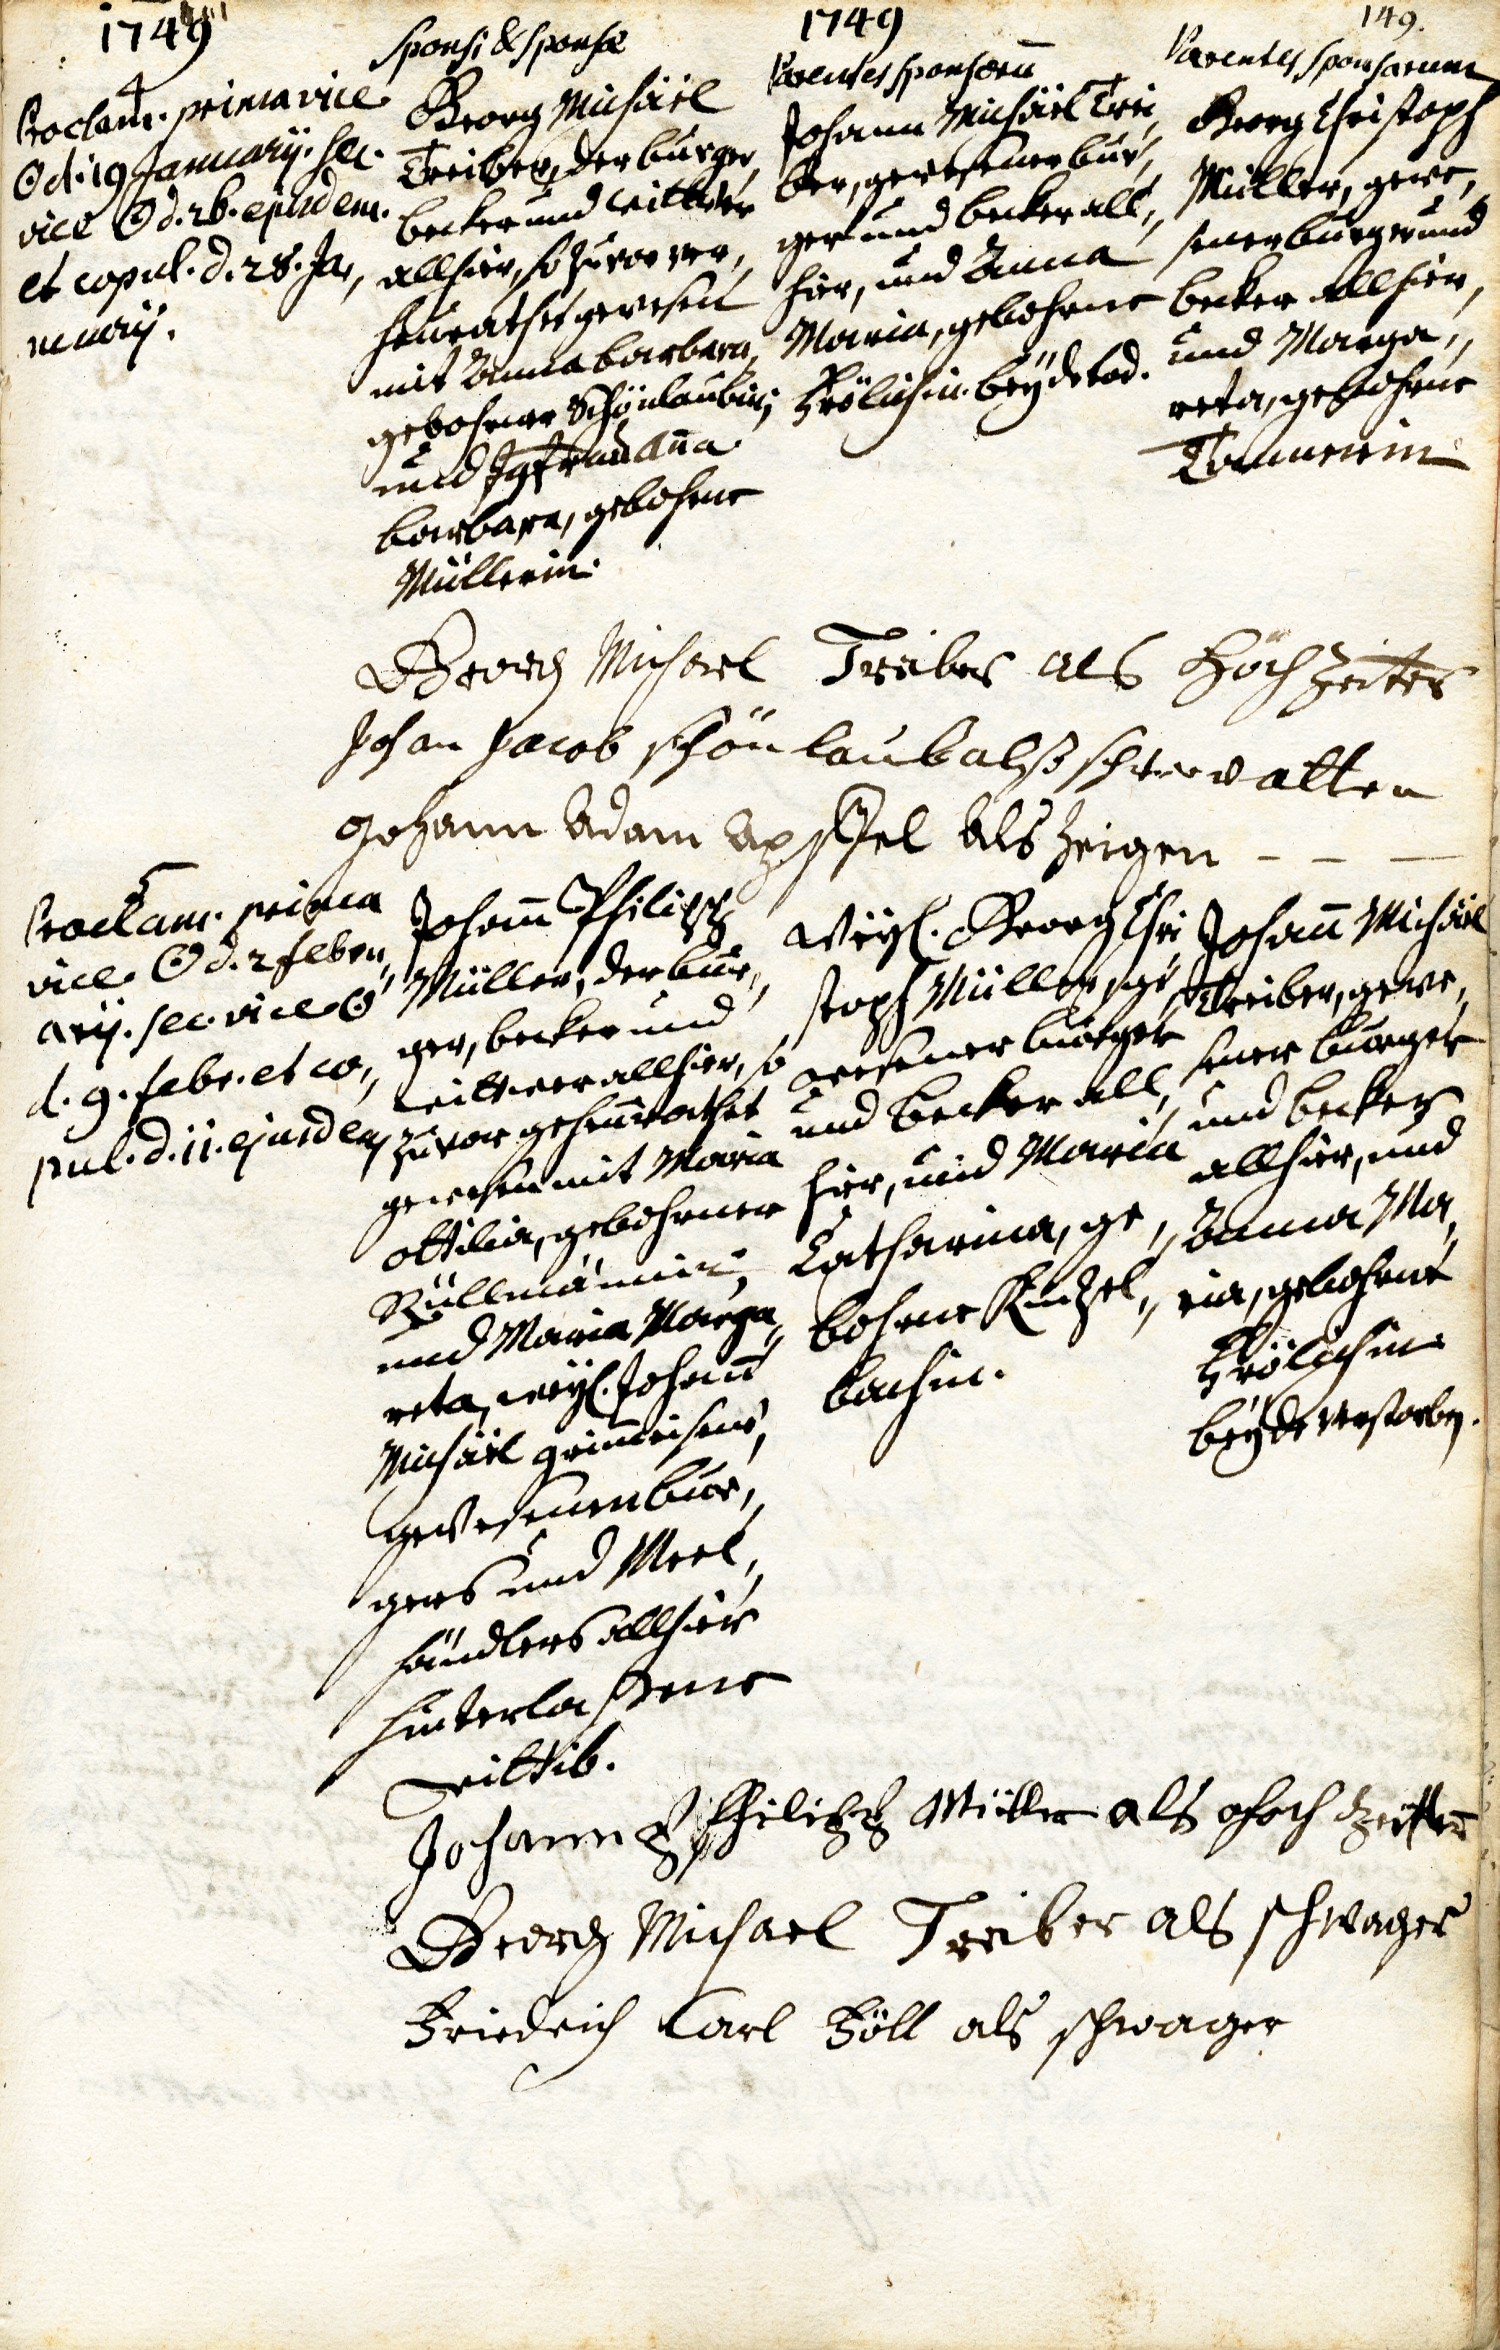 1749
1749
149.
Sponsi & Sponsæ
Parentes sponsorū
Parentes sponsarum
4
Proclam. prima vice
☉ d. 19 January. sec.
vice ☉ d. 26. ejusdem.
et copul. d. 28. Ja,,
nuarij.
Georg Michäel
Treiber, der burger,
becker und wittwer
allhier, so zuvor ver,,
heurathet gewesen
mit Anna barbara,
gebohrner Schönlaubin,
und Jgfrau Aña
barbara, gebohrne
Müllerin.
Johann Michäel Trei,,
ber, gewesener bur,,
ger und becker all,,
hier, und Anna
Maria, gebohrne
Frölichin. beÿde tod.
Georg Christoph
Müller, gewe,,
sener burger und
becker allhier,
und Marga,,
reta, gebohrne
Georg Michael Treiber als Hochzeiter
Johan Jacob schönlaub alß
Johann Adam als Zeigen - - -
5
Proclam. prima
vice ☉ d. 2 febru,,
arij. sec. vice ☉
d. 9. febr. et co,,
pul. d. 11. ejusdem
Johañ Philipp
Müller, der bur,,
ger, becker und
wittwer allhier, so
zuvor geheurathet
gewesen mit Maria
ottilia, gebohrner
und Maria Marga,,
reta, weyl. Johañ
Michäel
gewesenen bur,,
gers und Meel,,
händlers allhier
hinterlaßene
wittib.
Weyl. Georg Chri
stoph Müller, ge
wesener burger
und becker all,,
hier, und Maria
Catharina, ge,,
bohrne Künzel,,
bachin.
Johañ Michäel
Treiber, gewe,,
sener burger
und becker
allhier, und
Anna Ma,,
ria, gebohrne
Frölichin
beÿde verstorbē.
Johann Philipp Müller als hochzeitter
Georg Michael Treiber als schwager
Friedrich Carl Böll als schwager